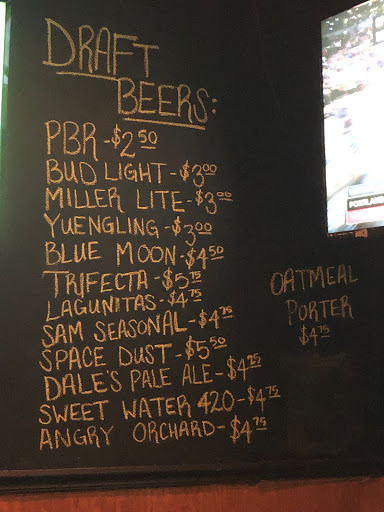 DRAFT
BEERS:
PBR-$2.50
BUD LIGHT-$3.00
MILLER LITE-$3.00
YUENGLING-$3.00
BLUE MOON-$4.50
TRIFECTA-$5.75
LAGUNITAS-$4.75
SAM SEASONAL-$4.75
SPACE DUST-$5.50
DALE'S PALE ALE-$4.25
SWEET WATER 420-$4.75
ANGRY ORCHARD-$4.75
OATMEAL
PORTER
$4.75